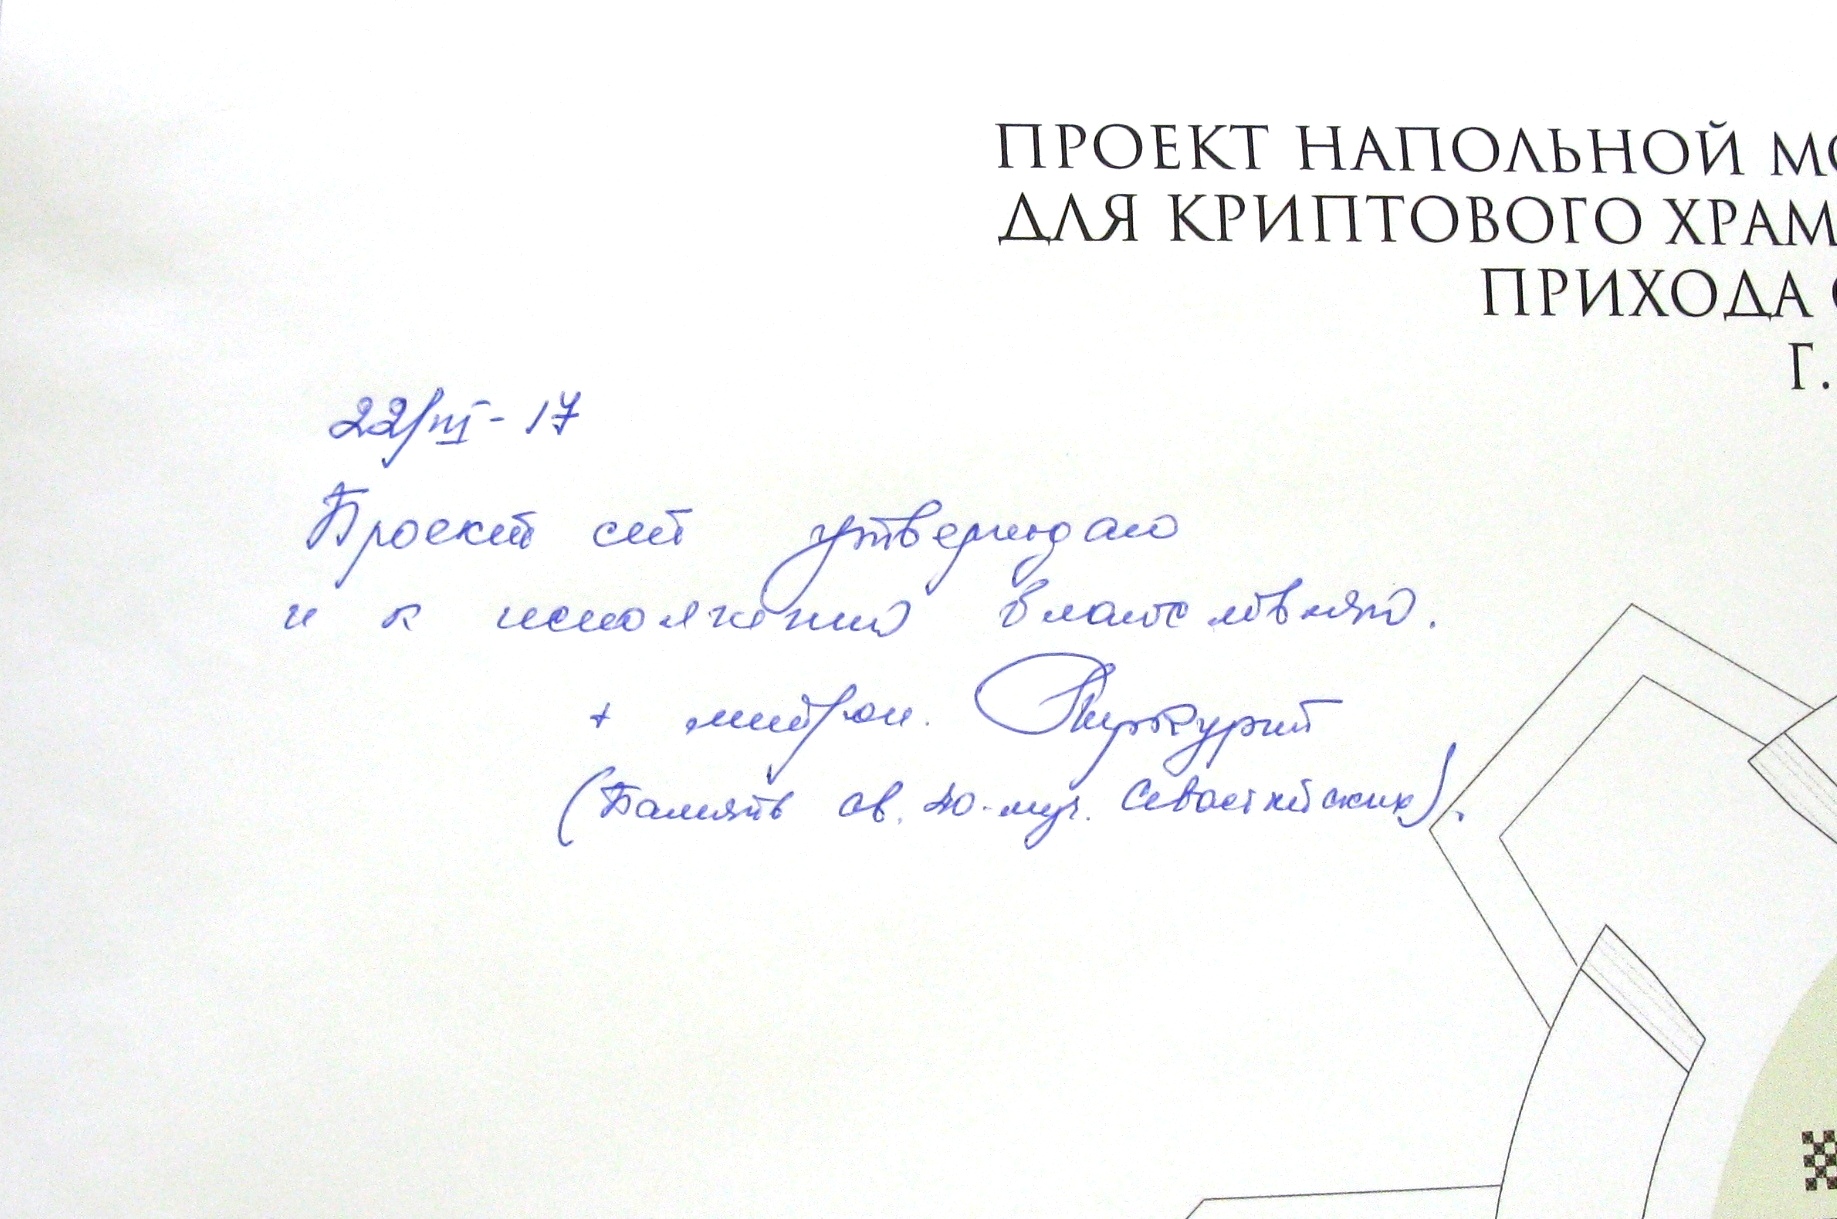 ПРОЕКТ НАПОЛЬНОЙ МО
ДЛЯ КРИПТОВОГО ХРАМ
ПРИХОДА С
Г.
22/III - 17
Проект сей утверждаю
и к исполнению благословляю.
+ митроп. Меркурий
(Память св. 40-муч. Севастийских).